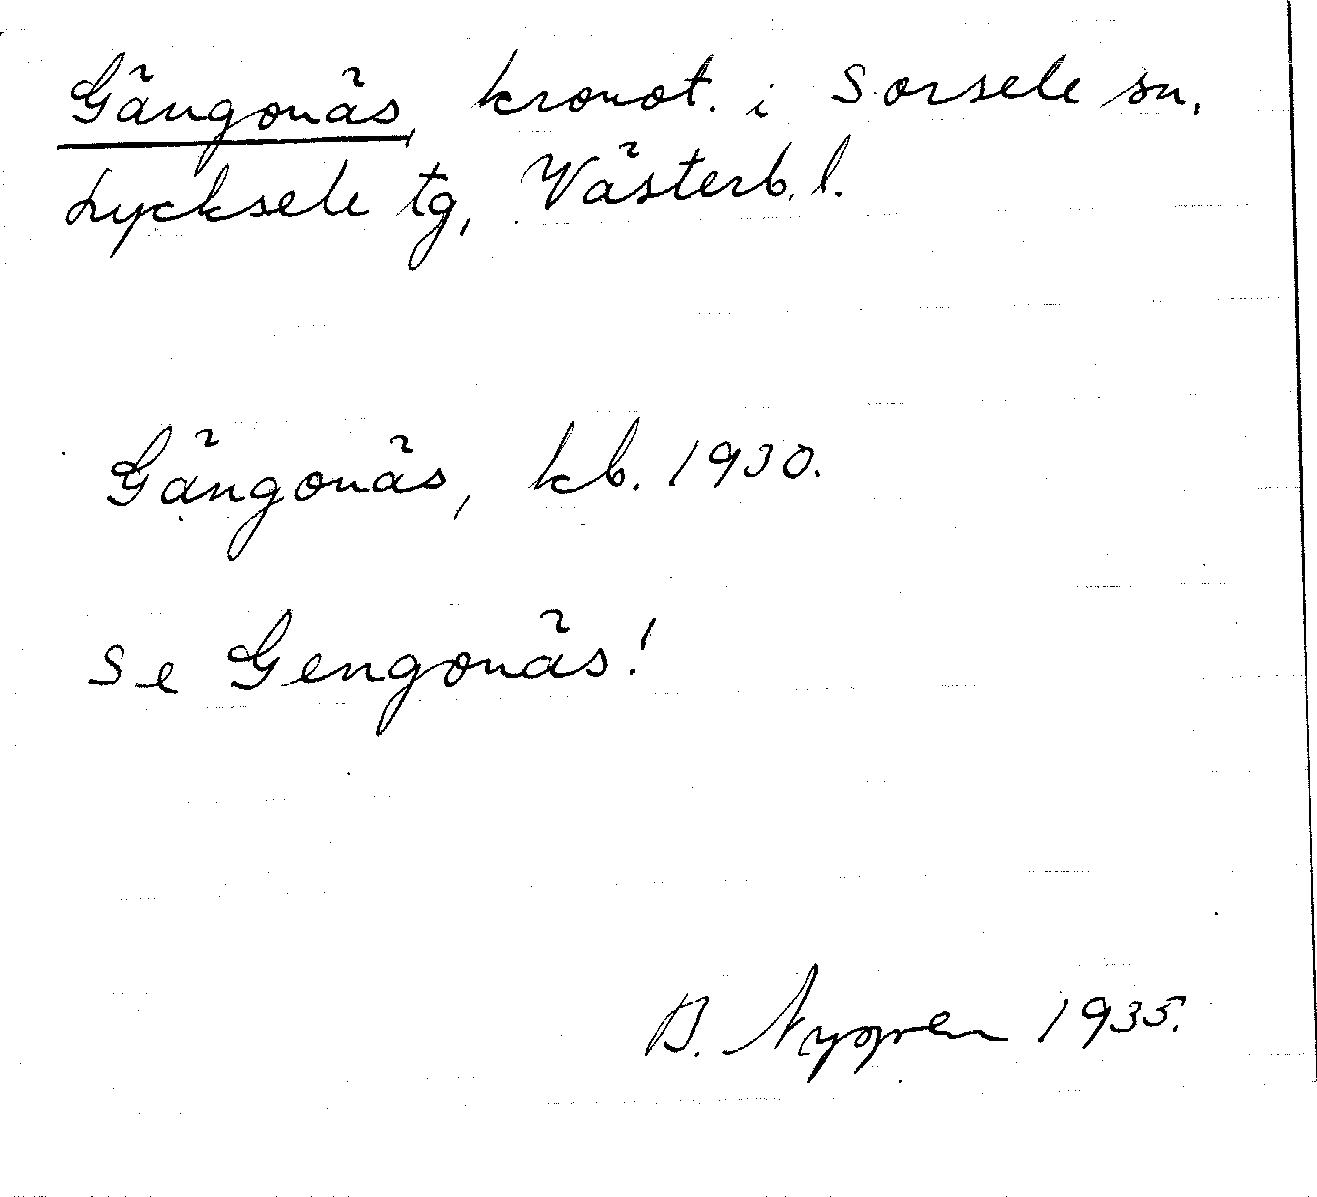 Gängonäs, kronot. i Sorsele sn.
Lycksele tg, Västerb. l.
Gängonäs, kb. 1930.
Se Gengonäs!
B. Nygren 1935.